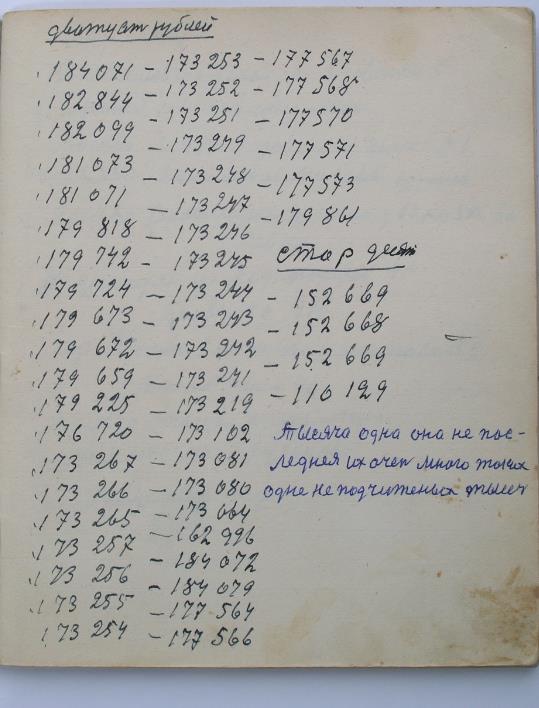 дватцат рублей
184071 – 173253 – 177567
182 844 – 173 252 – 177 568
182 099 – 173 251 – 177570
181 073 – 173 249 – 177571
181 071 – 173 248 – 177573
179 818 – 173 247 – 179 861
179 742 – 173 246
179 724 – 173 245
179 673 – 173 244
179 672 – 173 243
179 659 – 173 242
179 225 – 173 241
176 720 – 173 219
173 267 – 173 102
173 266 – 173 081
173 265 – 173 080
173 257 – 173 064
173 256 – 162 996
173 255 – 184 072
173 254 – 184 079
– 177 564
– 177 566
стор
– 152 669
– 152 668
– 152 669
– 110 129
тысяча одна она не пос-
ледняя их очен много таких
одне не подчитеных тысеч